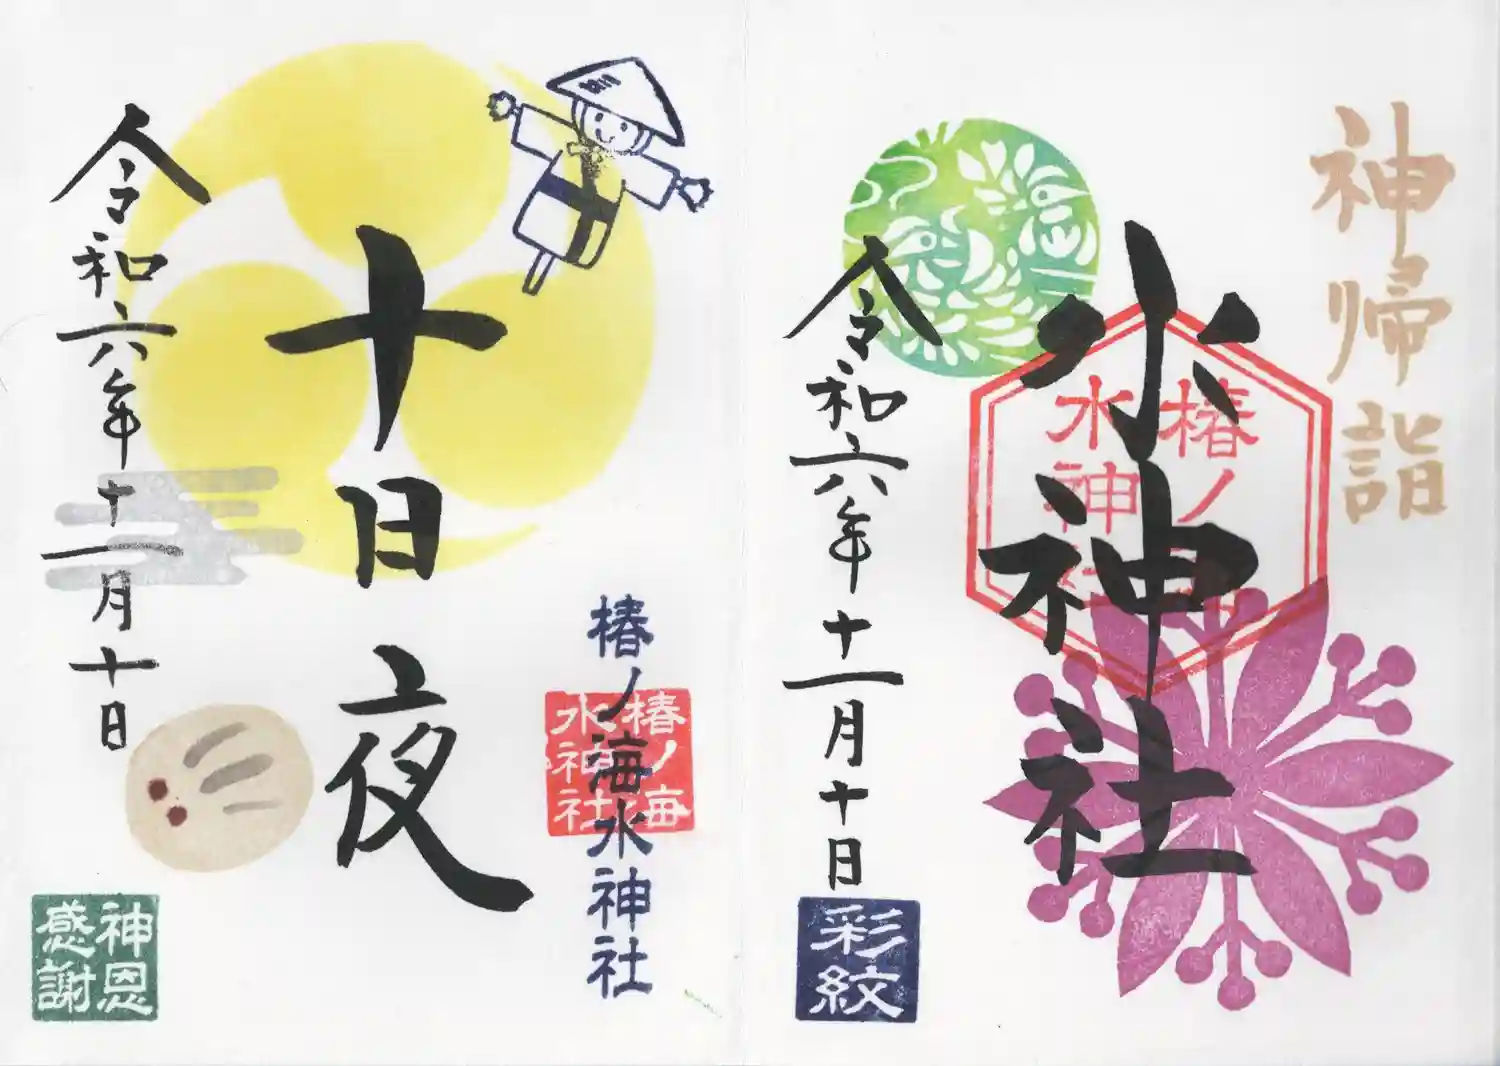 十日夜
令和六年十一月十日
椿ノ海水神社
椿ノ海
水神社
神恩
感謝
神帰詣
水神社
椿ノ海
水神社
令和六年十一月十日
彩紋